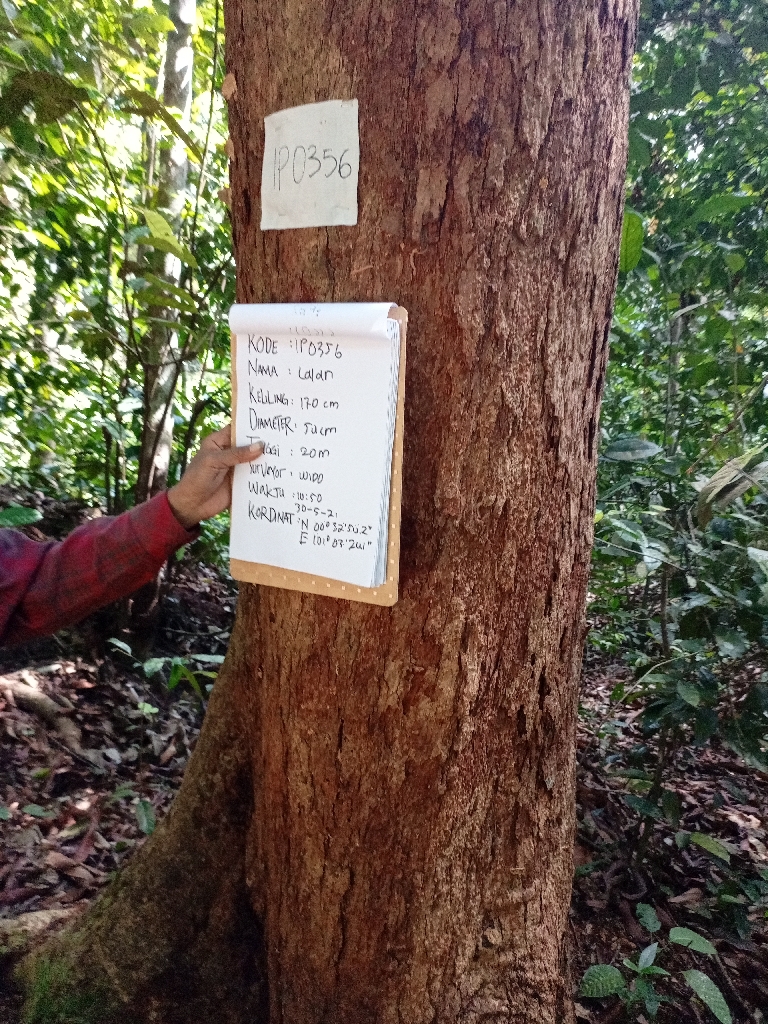 IP0356
KODE : IP0356
NAMA : Lalan
KELILING : 170 cm
DIAMETER : 54 cm
TINGGI : 20 m
SURVEYOR : WIDO
WAKTU : 10:50
30-5-21
KORDINAT : N 00° 32' 50.2"
E 101° 07'